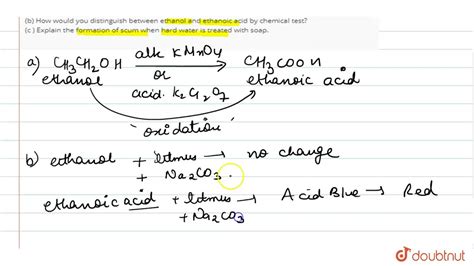 (b) How would you distinguish between ethanol and ethanoic acid by chemical test?
(c ) Explain the formation of scum when hard water is treated with soap.
a) CH3CH2OH alk KMnO4 CH3COOH
ethanol or ethanoic acid
acid. K2Cr2O7
"oxidation"
b) ethanol + litmus → no change
+ Na2CO3.
ethanoic acid + litmus → Acid Blue → Red
+ Na2CO3
doubtnut